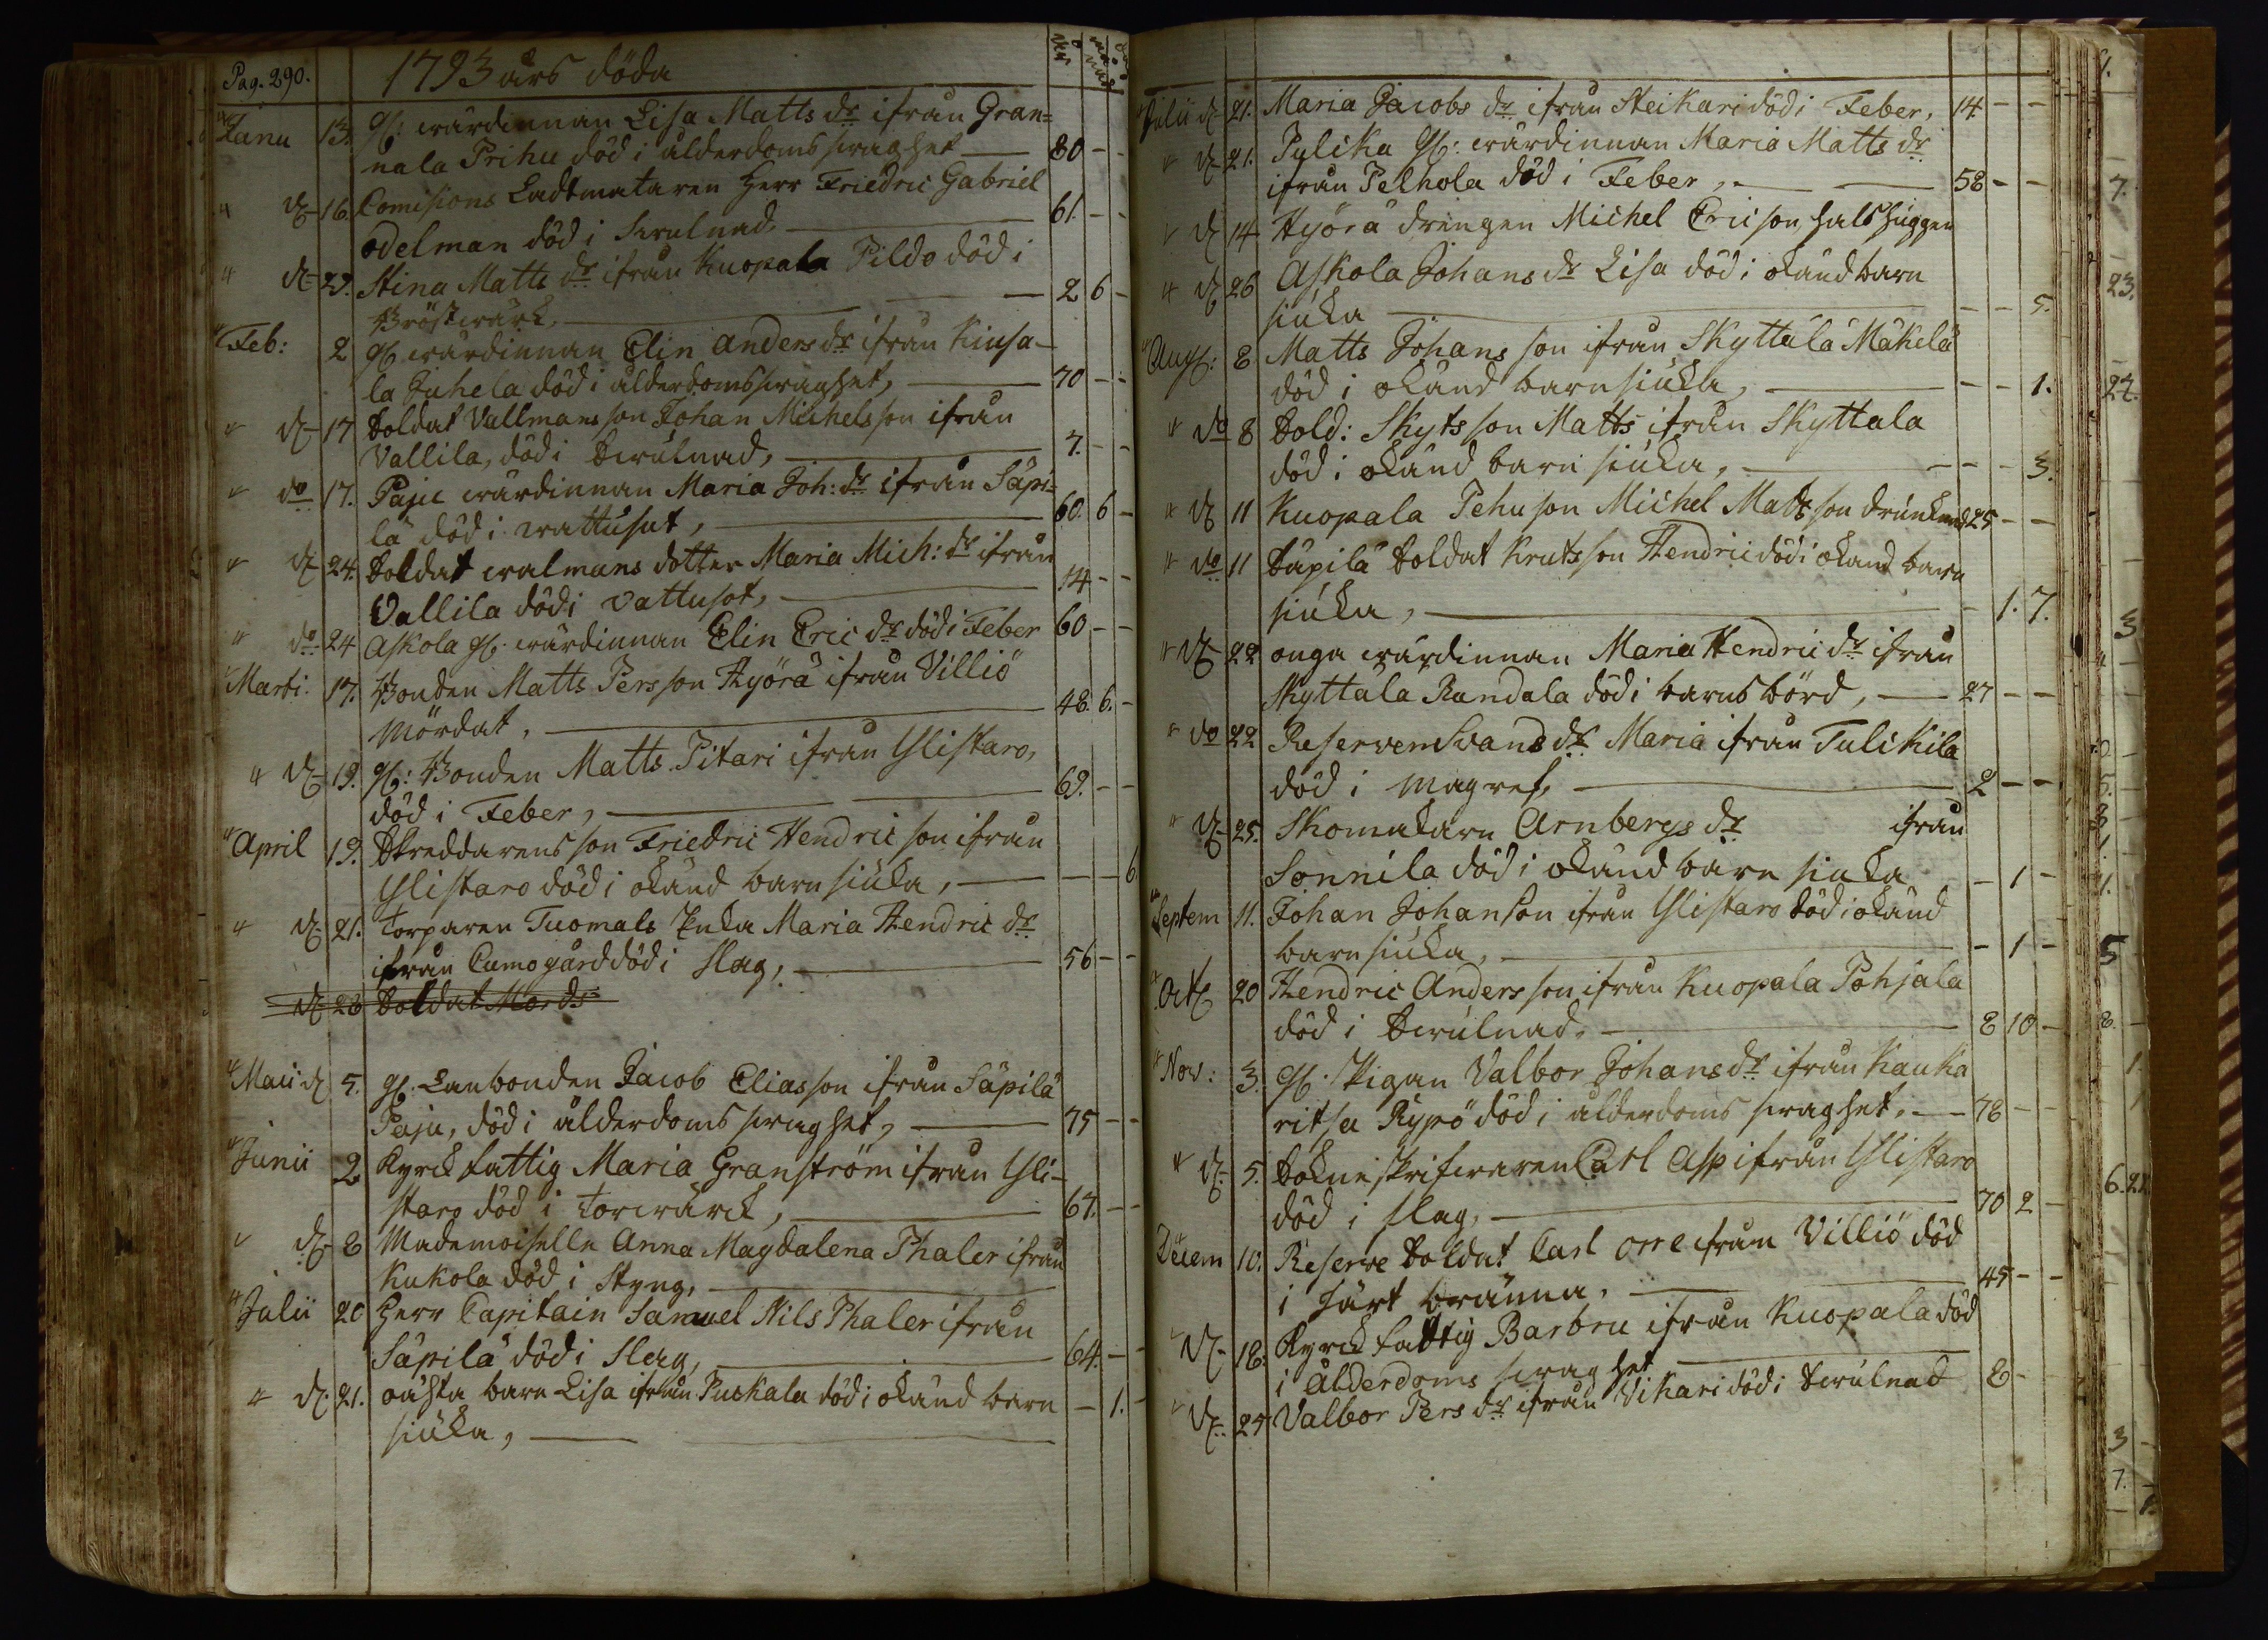 Pag. 290.
1793 års döda
åhr månad
Janu 13. gl: wärdinnan Lisa Matts dr ifrån Gran=
nala Prihu död i ålderdoms swaghet 80 - -
d. 16. Comisions Landtmätaren Herr Friedric Gabriel
Ödelman död i Swulnad 61. - -
d. 29. Stina Matts dr ifrån Kuopala Pildo död i
Bröstwärck, 2 6 -
Feb: 2 gl. wärdinnan Elin Anders dr ifrån Kinsa-
la Juhela död i ålderdomsswaghet, 70 - -
d. 17 Soldat Vallmans son Johan Michelsson ifrån
Vallila, död i Swulnad, 7. - -
do 17. Paju wärdinnan Maria Joh: dr ifrån Säpi=
lä död i wattusut, 60. 6 -
d. 24. Soldat walmans dotter Maria Mich: dr ifrån
Vallila död i vattusot, 14 - -
do 24 Askola gl. wärdinnan Elin Eric dr död i Feber 60 - -
Marti: 17. Bonden Matts Persson Hyörä ifrån Villiö
mördat, 48. 6. -
d. 19. gl: Bonden Matts Pitari ifrån Ylistaro,
död i Feber, 69. - -
April 19. Skreddarens son Friedric Hendric son ifrån
Ylistaro död i okänd barnsiuka, - - 6.
d. 21. Torparen Tuomals Enka Maria Hendric dr
ifrån Cumogård död i slag, 56 - -
d. 23 Soldat Mords
Maii d. 5. gl. Lanbonden Jacob Eliasson ifrån Säpilä
Paju, död i ålderdoms swaghet, 75 - -
Junii 2 Kyrck fattig Maria Granström ifrån Yli-
staro död i Torrwärck, 67. - -
d. 8 Mademoiselle Anna Magdalena Phaler ifrån
Kukola död i Styng,
Julii 20 Herr Capitain Samuel Nils Phaler ifrån
Säpilä död i Slag, 64. - -
d. 21. oächta barn Lisa ifrån Puckala död i okänd barn - 1. -
siuka,
Julii d. 21. Maria Jacobs dr ifrån Steikari död i Feber, 14 - -
d. 21. Pulika gl: wärdinnan Maria Matts dr
ifrån Pelhola död i Feber, 58 - -
d. 14 Hyörä drängen Michel Ericson halshuggen
d. 26 Askola Johans dr Lisa död i okänd barn
siuka - - 5.
Aug: 8 Matts Johans son ifrån Skyttälä Mäkelä
död i okänd barnsiuka, - - 1.
do 8 Sold: Skyts son Matts ifrån Skyttala
död i okänd barn siuka, - - 3.
d. 11 Kuopala Pehuson Michel Matts son drunknad 25 - -
do 11 Säpilä Soldat Kruts son Hendric död i okand barn
siuka, - 1. 7.
d. 22 onga wärdinnan Maria Hendric dr ifrån
Skyttälä Randala död i barnsbörd, 27 - -
do 22 Reserven Svans dr Maria ifrån Tulikila
död i magref, 2 - -
d. 25. Skomakarn Arnbergs dr ifrån
Sonnila död i okänd barn siuka - 1 -
Septem 11. Johan Johanson ifrån Ylistaro död i okänd
barnsiuka, - 1 -
Oct 20 Hendric Anders son ifrån Kuopala Pohjala
död i Swulnad. 8 10 -
Nov: 3. gl. Pigan Valbor Johans dr ifrån Kauka
ritsa Rypö död i ålderdoms swaghet. 78 - -
d. 5. Sokneskrifwaren Carl Asp ifrån Ylistaro
död i slag, 70 2 -
Decem 10. Reserve Soldat Carl Orre ifrån Villiö död
i hårt bränna. 45 - -
d. 18: Kyrck fattig Barbru ifrån Kuopala död
i Ålderdoms swaghet
d. 24 Valbor Pers dr ifrån Vikari död i Swulnad 8 -